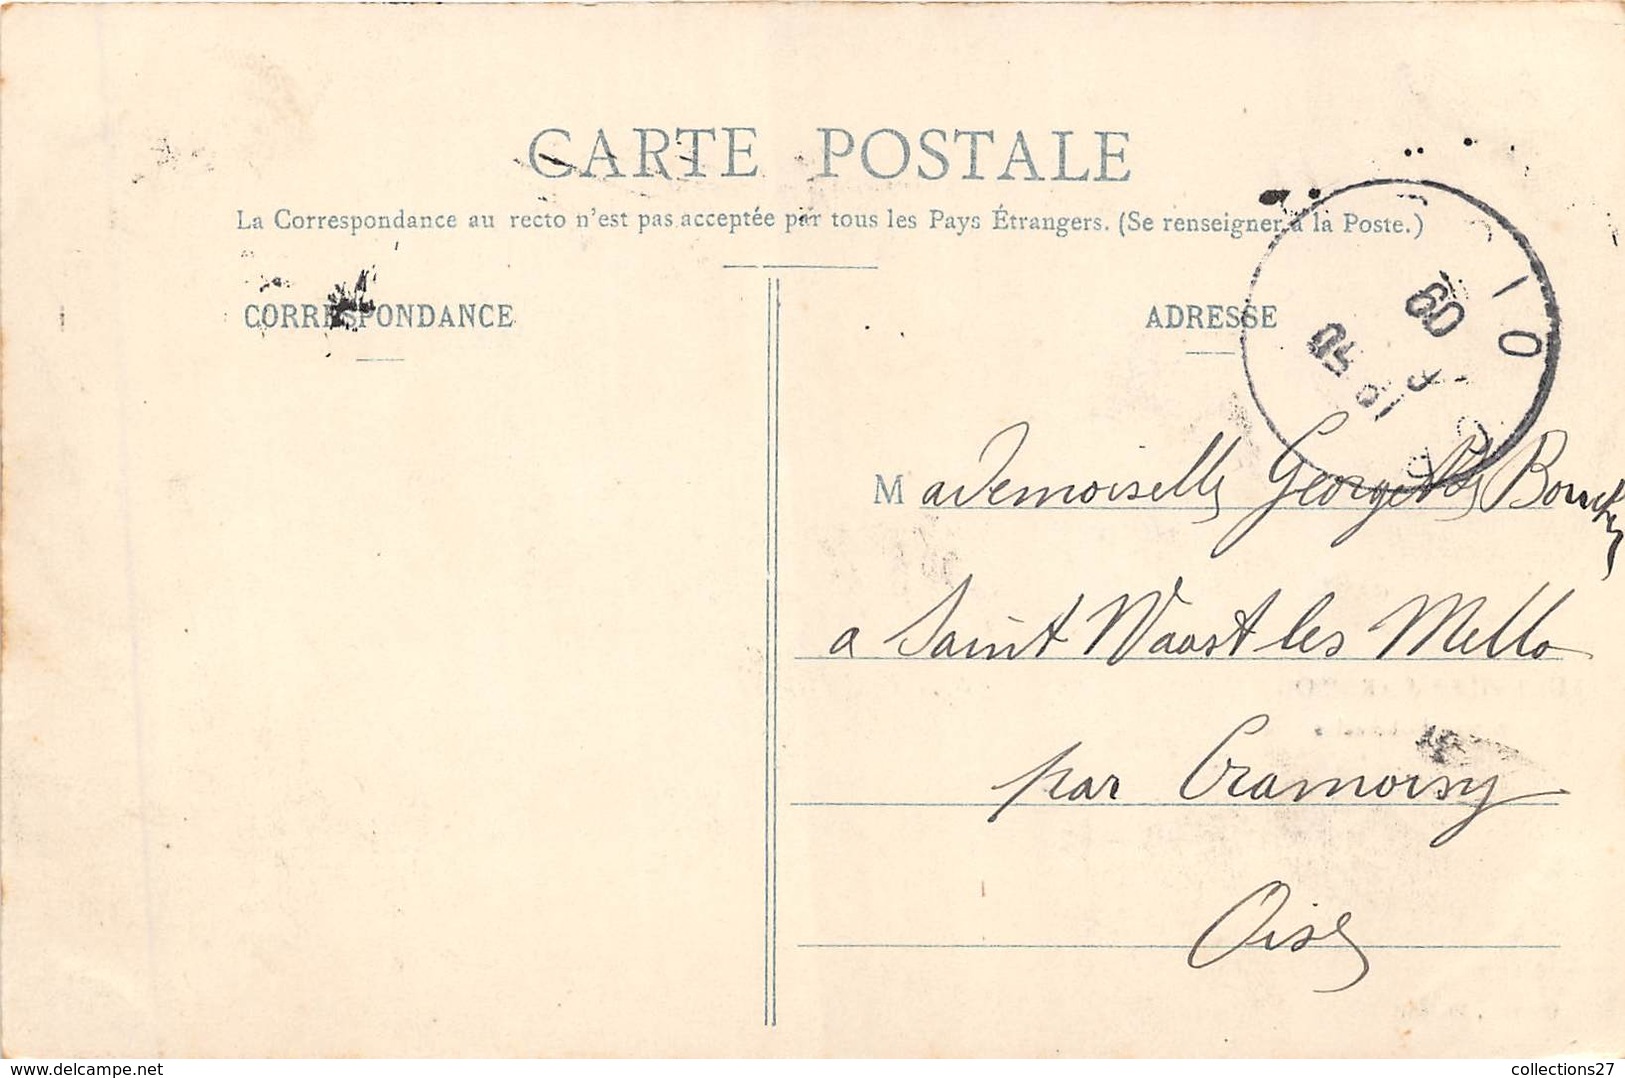 CARTE POSTALE
La Correspondance au recto n'est pas acceptée par tous les Pays Étrangers. (Se renseigner à la Poste.)
CORRESPONDANCE
ADRESSE
Mademoiselle Georgette
a Saint Waast les Mello
par Cramoisy
Oise
delcampe.net
collections27